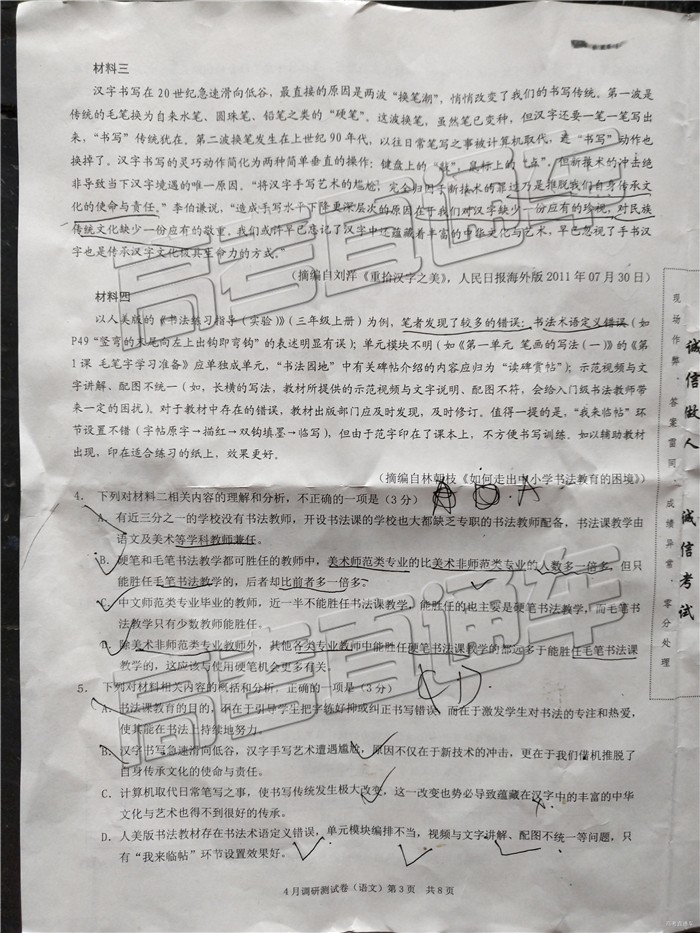 材料三
汉字书写在 20 世纪急速滑向低谷，最直接的原因是两波“换笔潮”，悄悄改变了我们的书写传统。第一波是
传统的毛笔换为自来水笔、圆珠笔、铅笔之类的“硬笔”。这波换笔，虽然笔已变种，但汉字还要一笔一笔写出
来，“书写”传统犹在。第二波换笔发生在上世纪 90 年代，以往日常笔写之事被计算机取代，连“书写”动作也
换掉了。汉字书写的灵巧动作简化为两种简单垂直的操作：键盘上的“敲”，鼠标上的“点”。但新技术的冲击绝
非导致当下汉字境遇的唯一原因。“将汉字手写艺术的尴尬，完全归因于新技术的罪过乃是推脱我们自身传承文
化的使命与责任。”李伯谦说，“造成手写水平下降更深层次的原因在于我们对汉字缺少一份应有的珍视，对民族
传统文化缺少一份应有的敬重。我们或许早已忘记了汉字中还蕴藏着丰富的中华文化与艺术，早已忽视了手书汉
字也是传承汉字文化极具生命力的方式。”
（摘编自刘洋《重拾汉字之美》，人民日报海外版 2011 年 07 月 30 日）
材料四
以人美版的《书法练习指导（实验）》（三年级上册）为例，笔者发现了较多的错误：书法术语定义错误（如
P49“竖弯的末尾向左上出钩即弯钩”的表述明显有误）；单元模块不明（如《第一单元 笔画的写法（一）》的《第
1 课 毛笔字学习准备》应单独成单元，“书法园地”中有关碑帖介绍的内容应归为“读碑赏帖”）；示范视频与文
字讲解、配图不统一（如，长横的写法，教材所提供的示范视频与文字说明、配图不符，会给入门级书法教师带
来一定的困扰）。对于教材中存在的错误，教材出版部门应及时发现，及时修订。值得一提的是，“我来临帖”环
节设置不错（字帖原字→描红→双钩填墨→临写），但由于范字印在了课本上，不方便书写训练。如以辅助教材
出现，印在适合练习的纸上，效果更好。
（摘编自林朝枝《如何走出中小学书法教育的困境》）
4. 下列对材料二相关内容的理解和分析，不正确的一项是（3 分） A D A
A. 有近三分之一的学校没有书法教师，开设书法课的学校也大都缺乏专职的书法教师配备，书法课教学由
语文及美术等学科教师兼任。
B. 硬笔和毛笔书法教学都可胜任的教师中，美术师范类专业的比美术非师范类专业的人数多一倍多，但只
能胜任毛笔书法教学的，后者却比前者多一倍多。
C. 中文师范类专业毕业的教师，近一半不能胜任书法课教学，能胜任的也主要是硬笔书法教学，而毛笔书
法教学只有少数教师能胜任。
D. 除美术非师范类专业教师外，其他各类专业教师中能胜任硬笔书法课教学的都远多于能胜任毛笔书法课
教学的，这应该与使用硬笔机会更多有关。
5. 下列对材料相关内容的概括和分析，正确的一项是（3 分）
A. 书法课教育的目的，不在于引导学生把字练好抑或纠正书写错误，而在于激发学生对书法的专注和热爱，
使其能在书法上持续地努力。
B. 汉字书写急速滑向低谷，汉字手写艺术遭遇尴尬，原因不仅在于新技术的冲击，更在于我们借机推脱了
自身传承文化的使命与责任。
C. 计算机取代日常笔写之事，使书写传统发生极大改变，这一改变也势必导致蕴藏在汉字中的丰富的中华
文化与艺术也得不到很好的传承。
D. 人美版书法教材存在书法术语定义错误，单元模块编排不当，视频与文字讲解、配图不统一等问题，只
有“我来临帖”环节设置效果好。
4 月调研测试卷（语文）第 3 页 共 8 页
现场作弊、答案雷同，成绩异常，零分处理
诚信做人 诚信考试
高考直通车
高考直通车